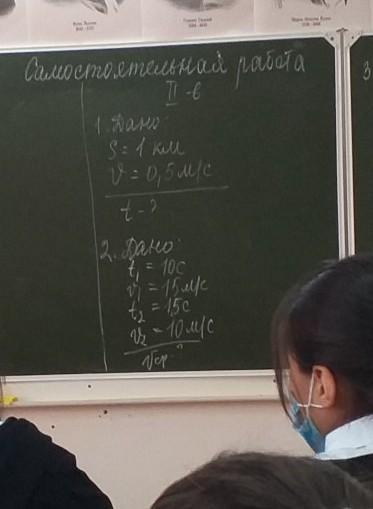 Самостоятельная работа
II-в
1. Дано:
S = 1 км
V = 0,5 м/с
t - ?
2. Дано:
t₁ = 10с
v₁ = 15м/с
t₂ = 15с
v₂ = 10м/с
Vср. - ?
3